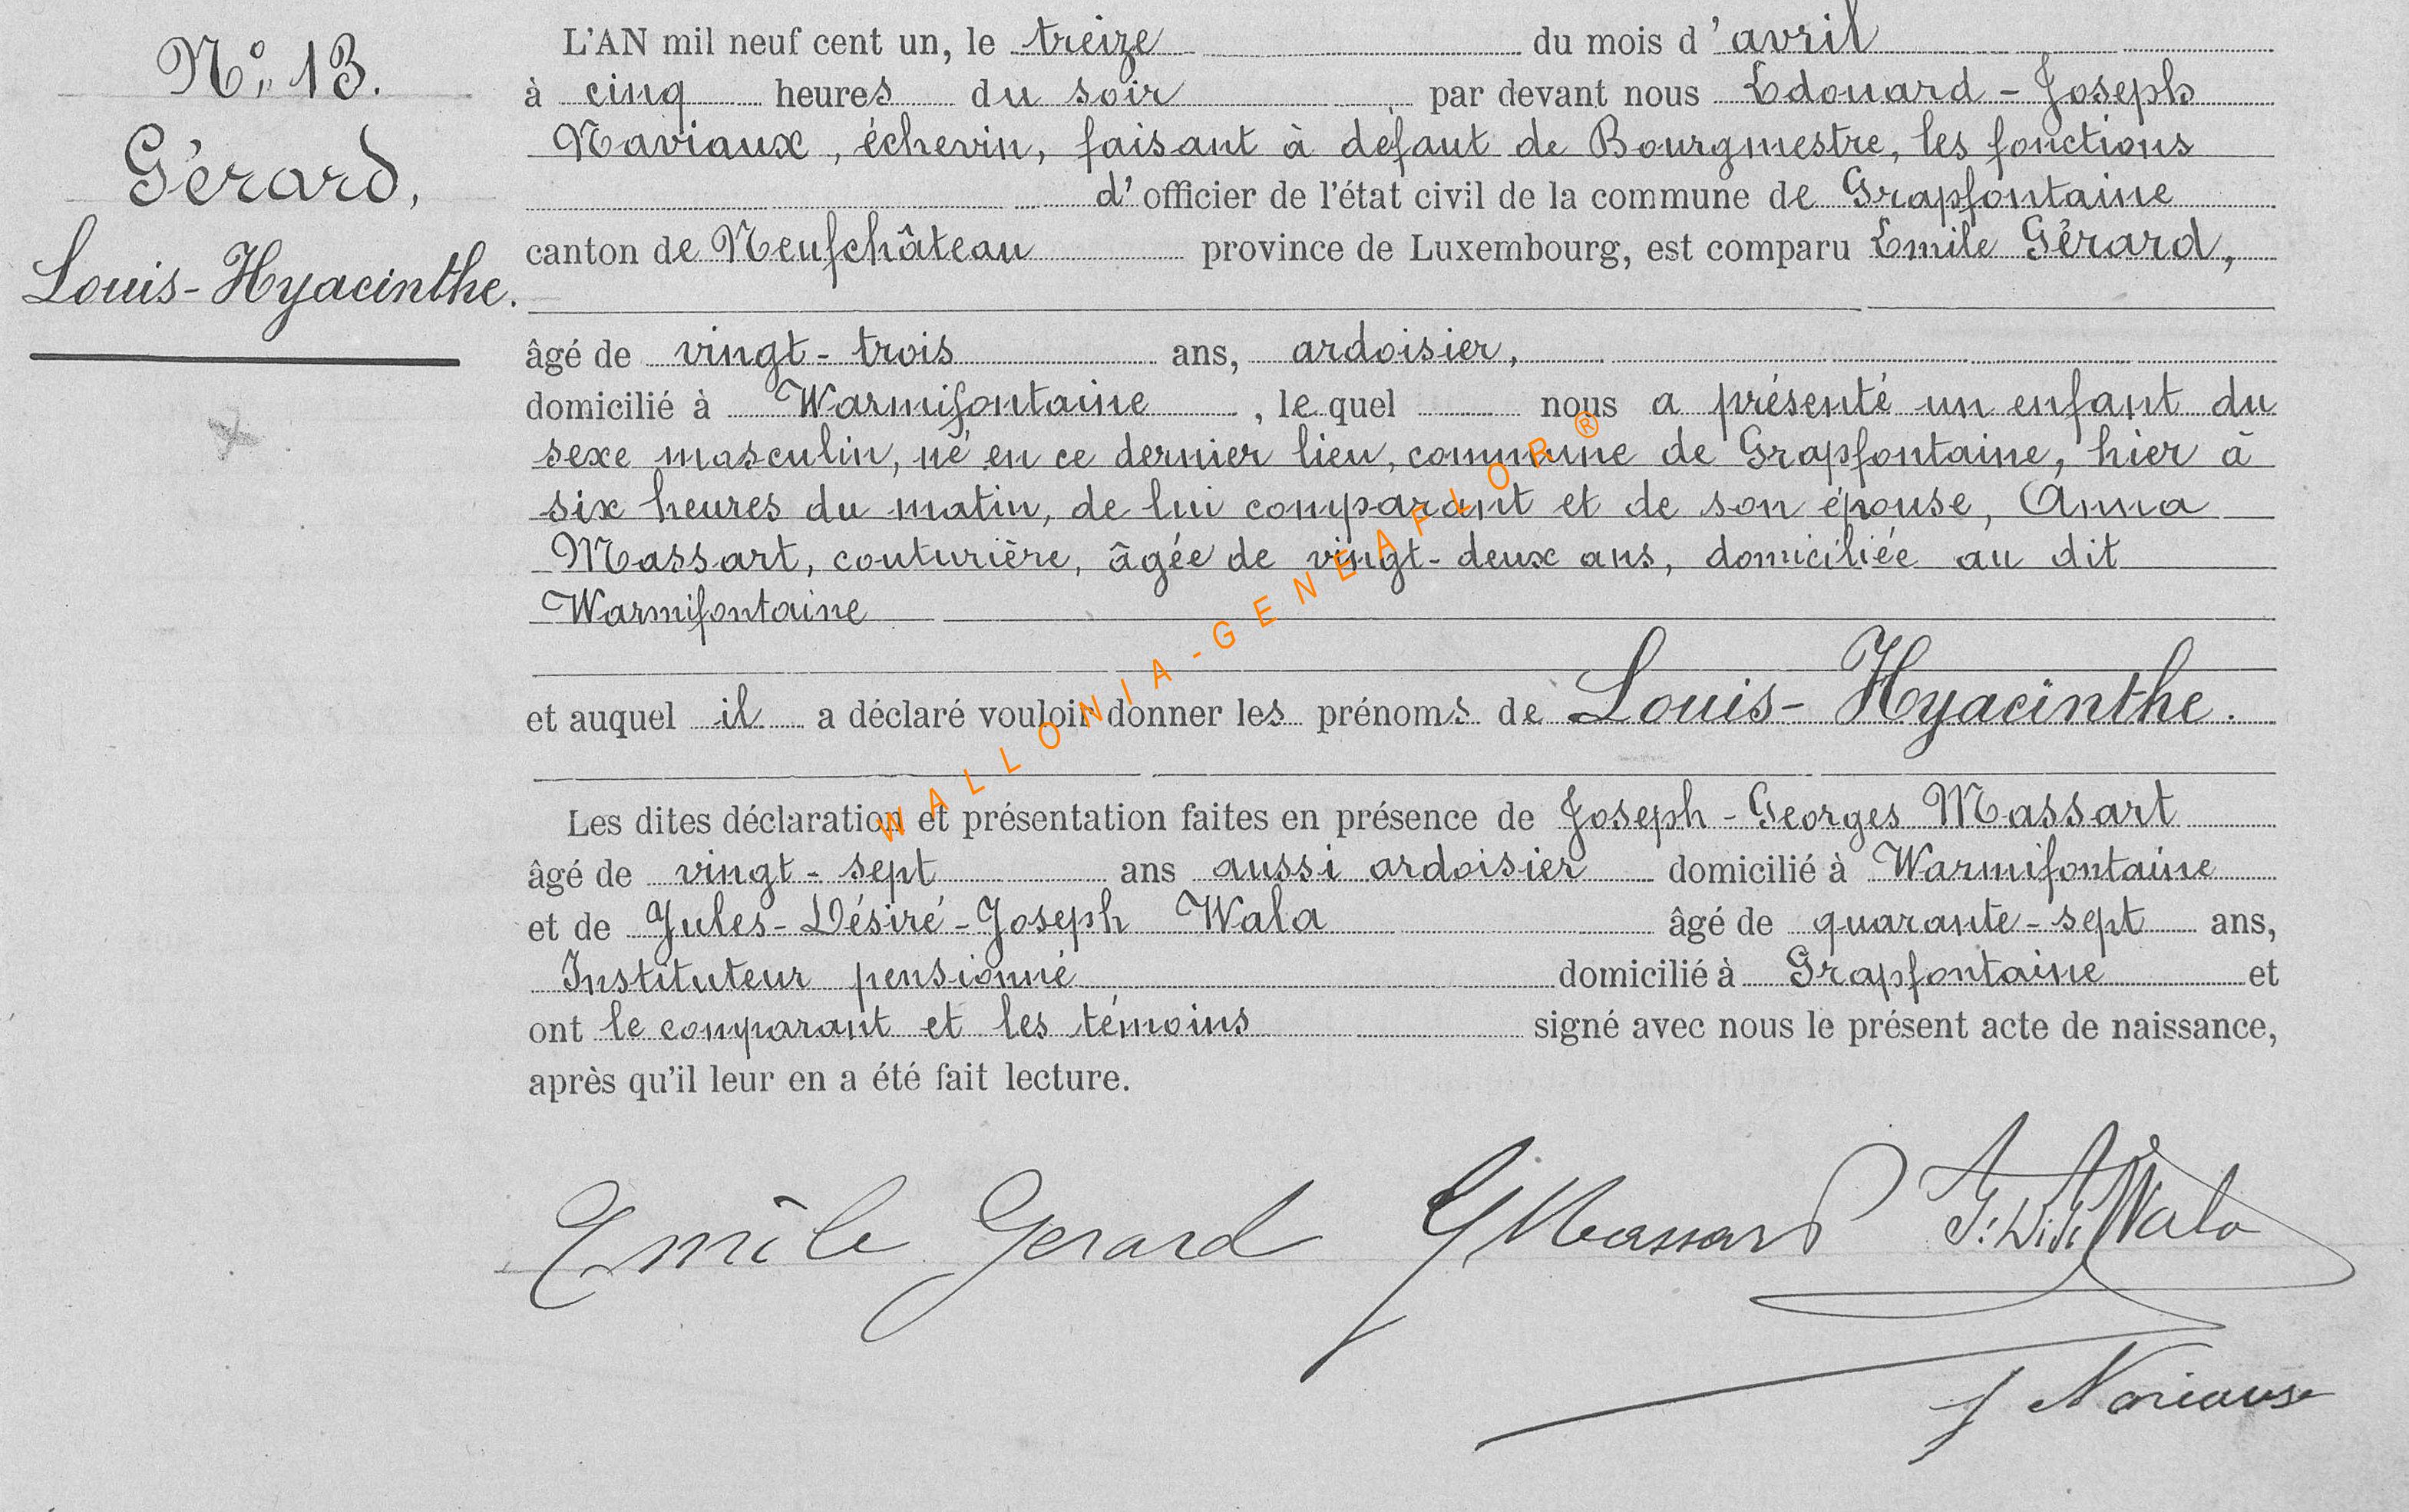 N° 13.
Gérard,
Louis-Hyacinthe.
L'AN mil neuf cent un, le treize du mois d'avril
à cinq heures du soir par devant nous Edouard-Joseph
Naviaux, échevin, faisant à défaut de Bourgmestre, les fonctions
d'officier de l'état civil de la commune de Grapfontaine
canton de Neufchâteau province de Luxembourg, est comparu Emile Gérard,
âgé de vingt-trois ans, ardoisier,
domicilié à Warmifontaine, lequel nous a présenté un enfant du
sexe masculin, né en ce dernier lieu, commune de Grapfontaine, hier à
six heures du matin, de lui comparant et de son épouse, Anna
Massart, couturière, âgée de vingt-deux ans, domiciliée au dit
Warmifontaine
et auquel il a déclaré vouloir donner les prénoms de Louis-Hyacinthe.
Les dites déclaration et présentation faites en présence de Joseph-Georges Massart
âgé de vingt-sept ans aussi ardoisier domicilié à Warmifontaine
et de Jules-Désiré-Joseph Wala âgé de quarante-sept ans,
Instituteur pensionné domicilié à Grapfontaine et
ont le comparant et les témoins signé avec nous le présent acte de naissance,
après qu'il leur en a été fait lecture.
Emile Gerard G Massart J. D. J. Wala
J Naviaux
WALLONIA-GENEAFLOR®